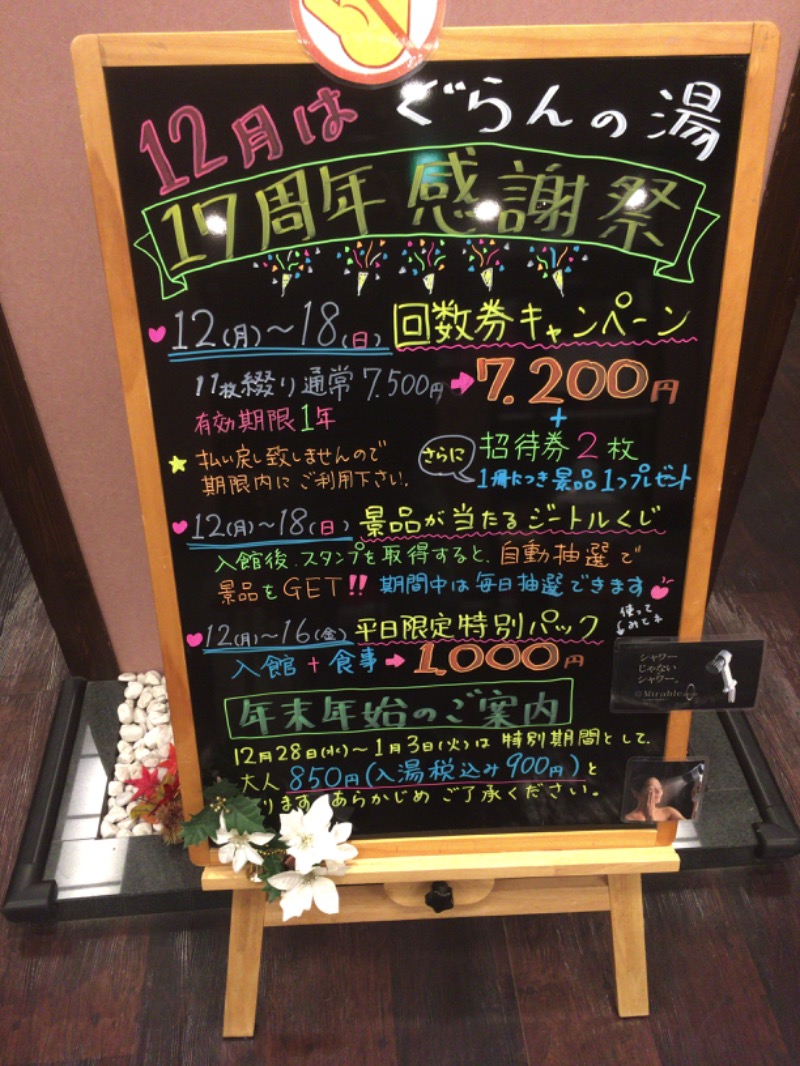 12月は ぐらんの湯
17周年 感謝祭
12(月)〜18(日) 回数券キャンペーン
11枚綴り通常 7.500円→7.200円
有効期限1年
+
招待券2枚
さらに
1冊につき景品1つプレゼント
払い戻し致しませんので
期限内にご利用下さい.
12(月)〜18(日) 景品が当たるジートルくじ
入館後、スタンプを取得すると、自動抽選で
景品をGET!! 期間中は毎日抽選できます
12(月)〜16(金) 平日限定特別パック
入館+食事→1,000円
使って
みてネ
シャワー
じゃない
シャワー。
Mirable
年末年始のご案内
12月28日(水)〜1月3日(火)は 特別期間として、
大人 850円(入湯税込み900円)と
ります。あらかじめ ご了承ください。